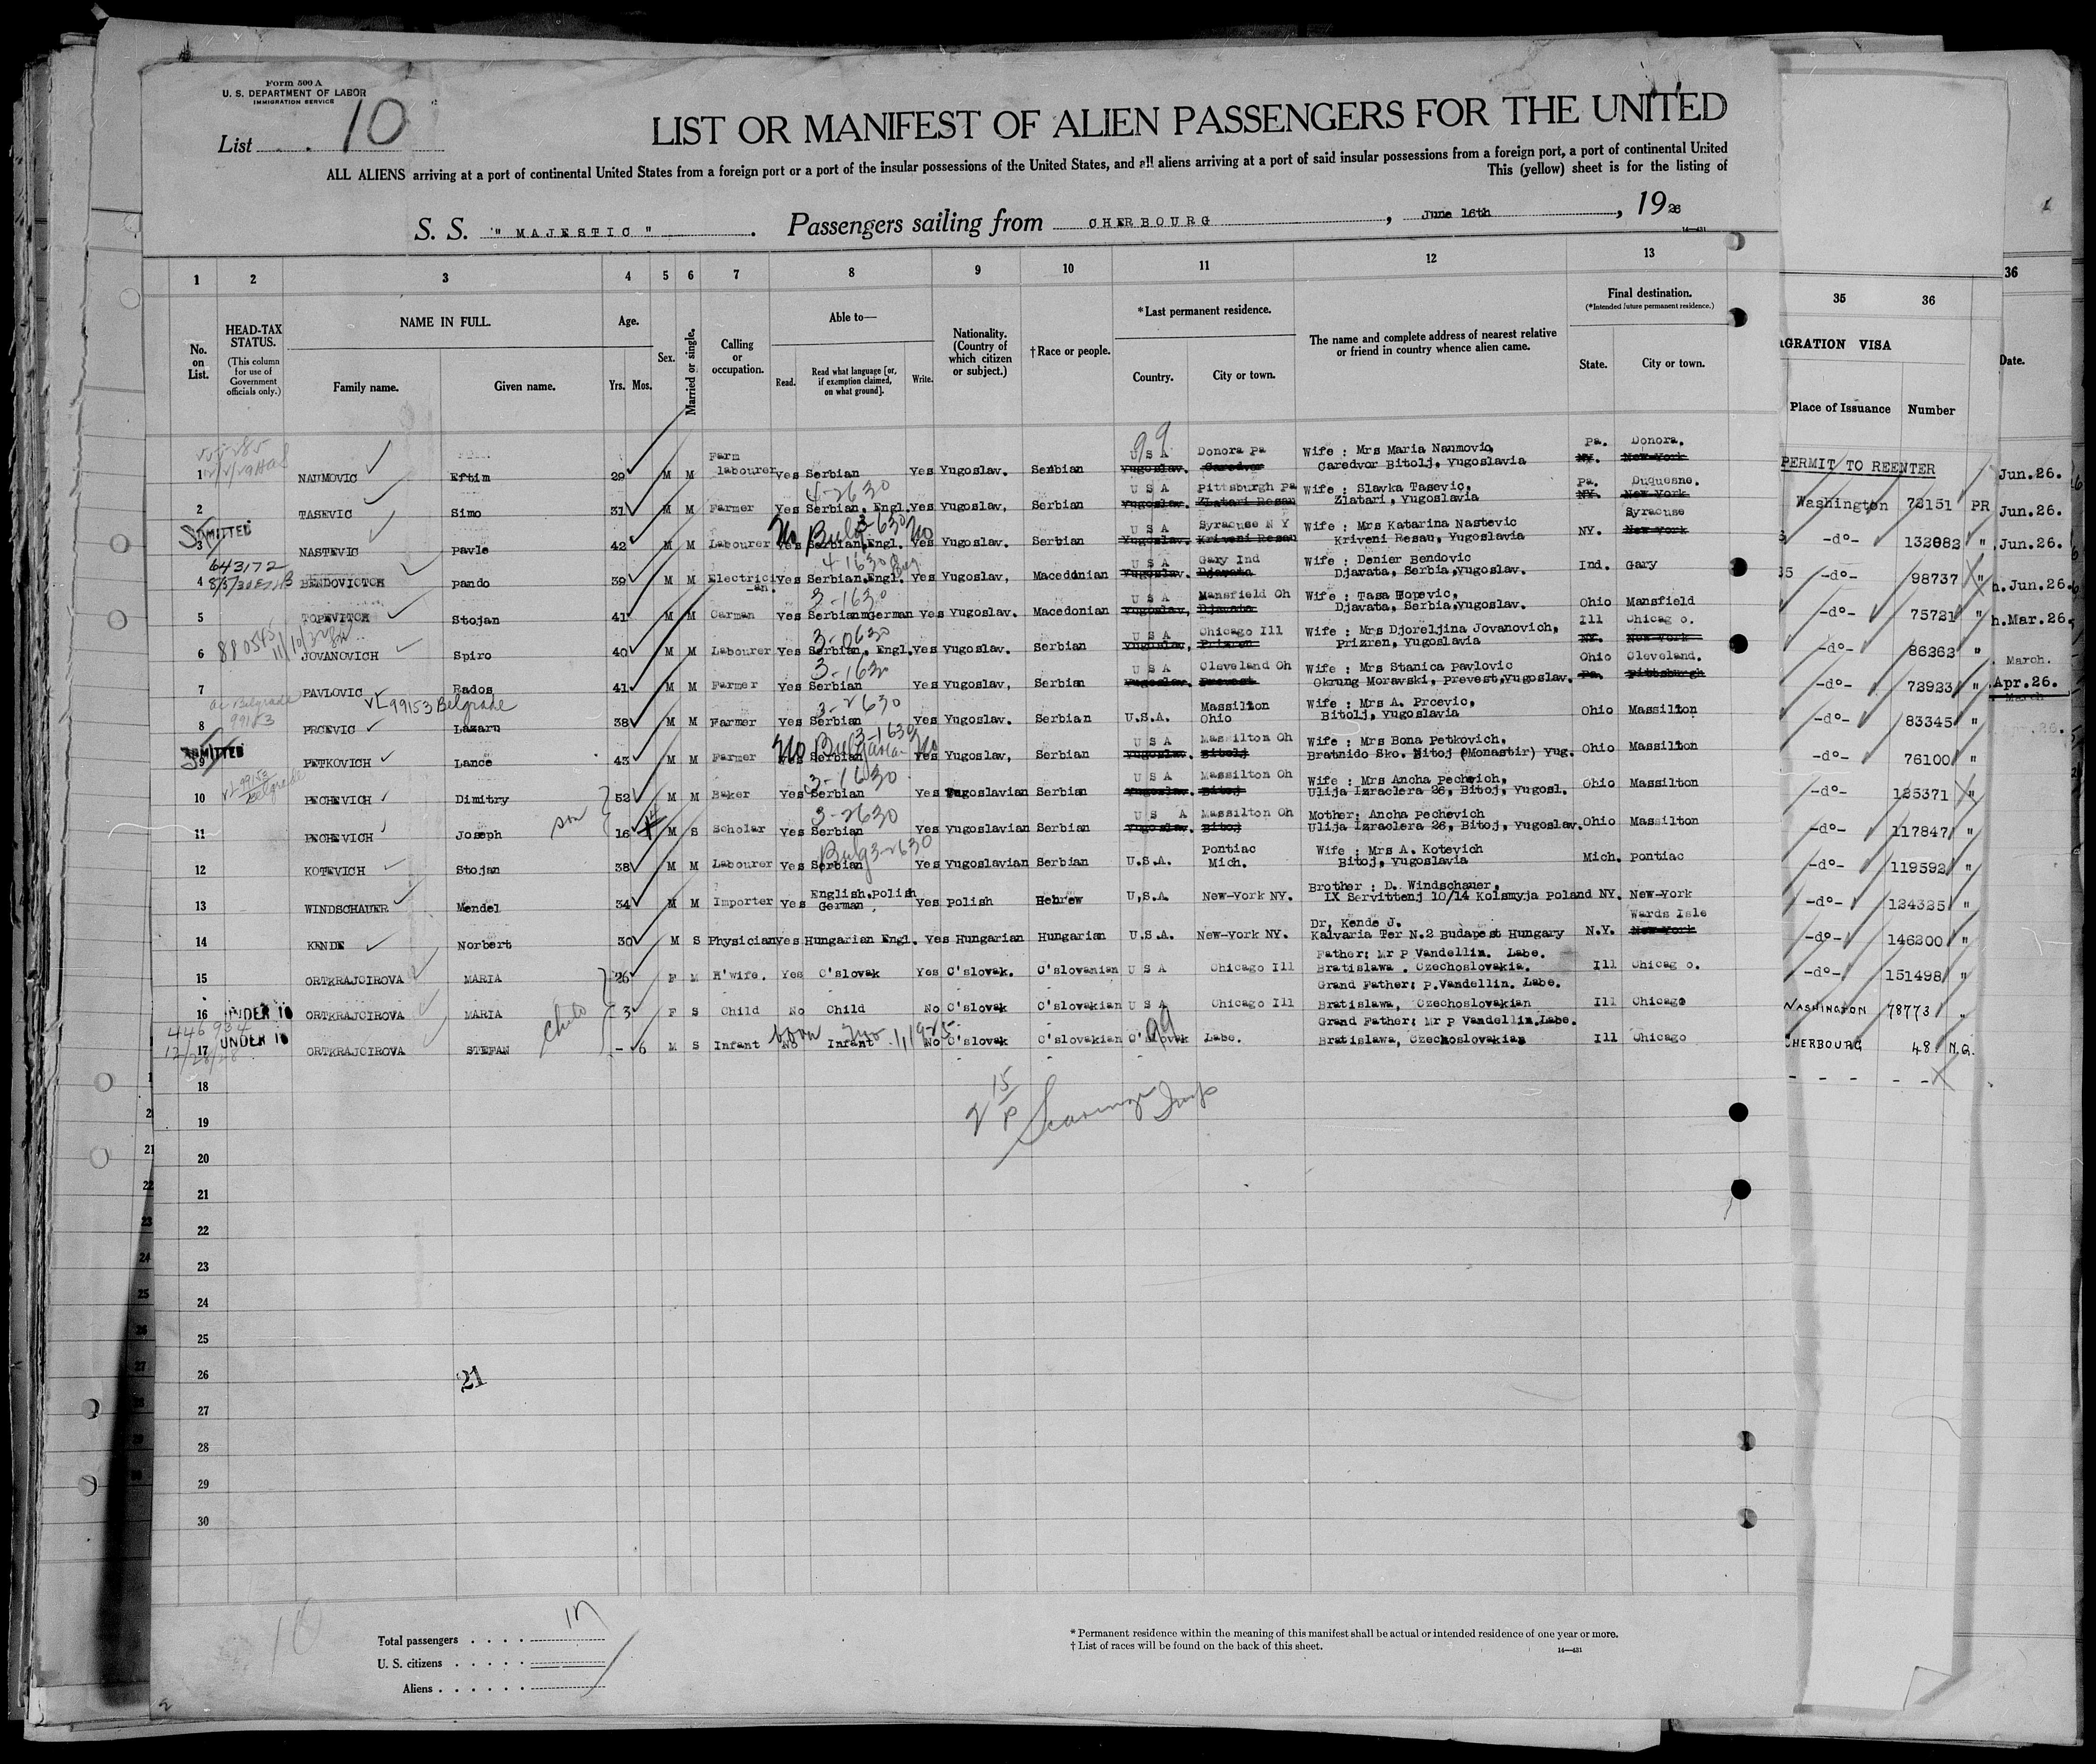 Form 500 A
U. S. DEPARTMENT OF LABOR
IMMIGRATION SERVICE
List 10
LIST OR MANIFEST OF ALIEN PASSENGERS FOR THE UNITED
ALL ALIENS arriving at a port of continental United States from a foreign port or a port of the insular possessions of the United States, and all aliens arriving at a port of said insular possessions from a foreign port, a port of continental United
This (yellow) sheet is for the listing of
S. S. "MAJESTIC". Passengers sailing from CHERBOURG, June 16th, 1926
14—431
1 2 3 4 5 6 7 8 9 10 11 12 13 35 36 36
No. on List.
HEAD-TAX STATUS.
(This column for use of Government officials only.)
NAME IN FULL.
Family name. Given name.
Age.
Yrs. Mos.
Sex.
Married or single.
Calling or occupation.
Able to—
Read. Read what language [or, if exemption claimed, on what ground]. Write.
Nationality. (Country of which citizen or subject.)
†Race or people.
*Last permanent residence.
Country. City or town.
The name and complete address of nearest relative or friend in country whence alien came.
Final destination.
(*Intended future permanent residence.)
State. City or town.
GRATION VISA
Place of Issuance Number
Date.
PERMIT TO REENTER
1 NAUMOVIC Eftim 29 M M Farm labourer Yes Serbian Yes Yugoslav. Serbian USA Yugoslav. Donora Pa Caredvor Wife : Mrs Maria Naumovic, Caredvor Bitolj, Yugoslavia Pa. NY. Donora. New-York
4-2630
2 TASEVIC Simo 31 M M Farmer Yes Serbian, Engl. Yes Yugoslav, Serbian USA Yugoslav. Pittsburgh Pa Zlatari Resan Wife : Slavka Tasevic, Zlatari, Yugoslavia Pa. NY. Duquesne. New York
ADMITTED
No Bulg 3-630 No
3 NASTEVIC Pavle 42 M M Labourer Yes Serbian, Engl. Yes Yugoslav. Serbian USA Yugoslav. Syracuse N Y Kriveni Resau Wife : Mrs Katarina Nastevic Kriveni Resau, Yugoslavia NY. Syracuse New York
643172
4-1630 Bug
4 BENDOVITCH Pando 39 M M Electrician. Yes Serbian, Engl. Yes Yugoslav, Macedonian USA Yugoslav. Gary Ind Djavata Wife : Denier Bendovic Djavata, Serbia, Yugoslav. Ind. Gary
3-1630
5 TOPEVITCH Stojan 41 M M Carman Yes Serbian German Yes Yugoslav. Macedonian USA Yugoslav, Mansfield Oh Djavata Wife : Tasa Topevic, Djavata, Serbia, Yugoslav. Ohio Mansfield
880545
3-0630
6 JOVANOVICH Spiro 40 M M Labourer Yes Serbian, Engl. Yes Yugoslav. Serbian USA Yugoslav, Chicago Ill Prizren Wife : Mrs Djoreljina Jovanovich, Prizren, Yugoslavia Ill NY. Chicag o. New-York
3-1630
7 PAVLOVIC Rados 41 M M Farmer Yes Serbian Yes Yugoslav, Serbian USA Yugoslav. Cleveland Oh Prevest Wife : Mrs Stanica Pavlovic Okrung Moravski, Prevest, Yugoslav. Ohio Pa. Cleveland. Pittsburgh
99153 Belgrade
3-2630
8 PRCEVIC Lazaru 38 M M Farmer Yes Serbian Yes Yugoslav. Serbian U.S.A. Massilton Ohio Wife : Mrs A. Prcevic, Bitolj, Yugoslavia Ohio Massilton
ADMITTED
No Bulgarian 3-1630 No
9 PETKOVICH Lance 43 M M Farmer Yes Serbian Yes Yugoslav, Serbian USA Yugoslav. Massilton Oh Bitolj Wife : Mrs Bona Petkovich, Bratnido Sko. Bitoj (Monastir) Yug. Ohio Massilton
99153 Belgrade
3-1630
10 PECHEVICH Dimitry 52 M M Baker Yes Serbian Yes Yugoslavian Serbian USA Yugoslav. Massilton Oh Bitoj Wife : Mrs Ancha Pechevich, Ulija Izraclera 26, Bitoj, Yugosl. Ohio Massilton
3-2630
11 PECHEVICH Joseph son 16 M S Scholar Yes Serbian Yes Yugoslavian Serbian USA Yugoslav. Massilton Oh Bitoj Mother; Ancha Pechevich Ulija Izraclera 26, Bitoj, Yugoslav. Ohio Massilton
Bulg 3-2630
12 KOTEVICH Stojan 38 M M Labourer Yes Serbian Yes Yugoslavian Serbian U.S.A. Pontiac Mich. Wife : Mrs A. Kotevich Bitoj, Yugoslavia Mich. Pontiac
13 WINDSCHAUER Mendel 34 M M Importer Yes English.Polish German. Yes Polish Hebrew U.S.A. New-York NY. Brother : D. Windschauer, IX Servittenj 10/14 Kolsmyja Poland NY. New-York
14 KENDE Norbert 30 M S Physician Yes Hungarian Engl. Yes Hungarian Hungarian U.S.A. New-York NY. Dr, Kende J. Kalvaria Ter N.2 Budapest Hungary N.Y. Wards Isle New-York
15 ORTKRAJCIROVA MARIA 26 F M H'wife. Yes C'slovak Yes C'slovak. C'slovanian USA Chicago Ill Father; Mr P Vandellin. Labe. Bratislawa. Czechoslovakia. Ill Chicag o.
16 UNDER 16 ORTKRAJCIROVA MARIA child 3 F S Child No Child No C'slovak C'slovakian USA Chicago Ill Grand Father; P.Vandellin. Labe. Bratislawa, Czechoslovakian Ill Chicago
446934
17 UNDER 16 ORTKRAJCIROVA STEFAN - 6 M S Infant No Infant No C'slovak C'slovakian C'slovak Labe. Grand Father; Mr P Vandellin.Labe. Bratislawa, Czechoslovakian Ill Chicago
born 1925
99
18
19
20
21
22
23
24
25
26
27
28
29
30
21
Washington 72151 PR Jun.26.
-do- 132082 " Jun.26.
-do- 98737 " Jun.26.
-do- 75721 " Jun.26.
-do- 86262 " Mar.26.
-do- 72923 " March.
-do- 83345 " Apr.26.
-do- 76100 "
-do- 125371 "
-do- 117847 "
-do- 119592 "
-do- 124325 "
-do- 146200 "
-do- 151498 "
WASHINGTON 78773 "
CHERBOURG 48 N.Q.
Total passengers 17
U. S. citizens
Aliens
10
* Permanent residence within the meaning of this manifest shall be actual or intended residence of one year or more.
† List of races will be found on the back of this sheet.
14—431